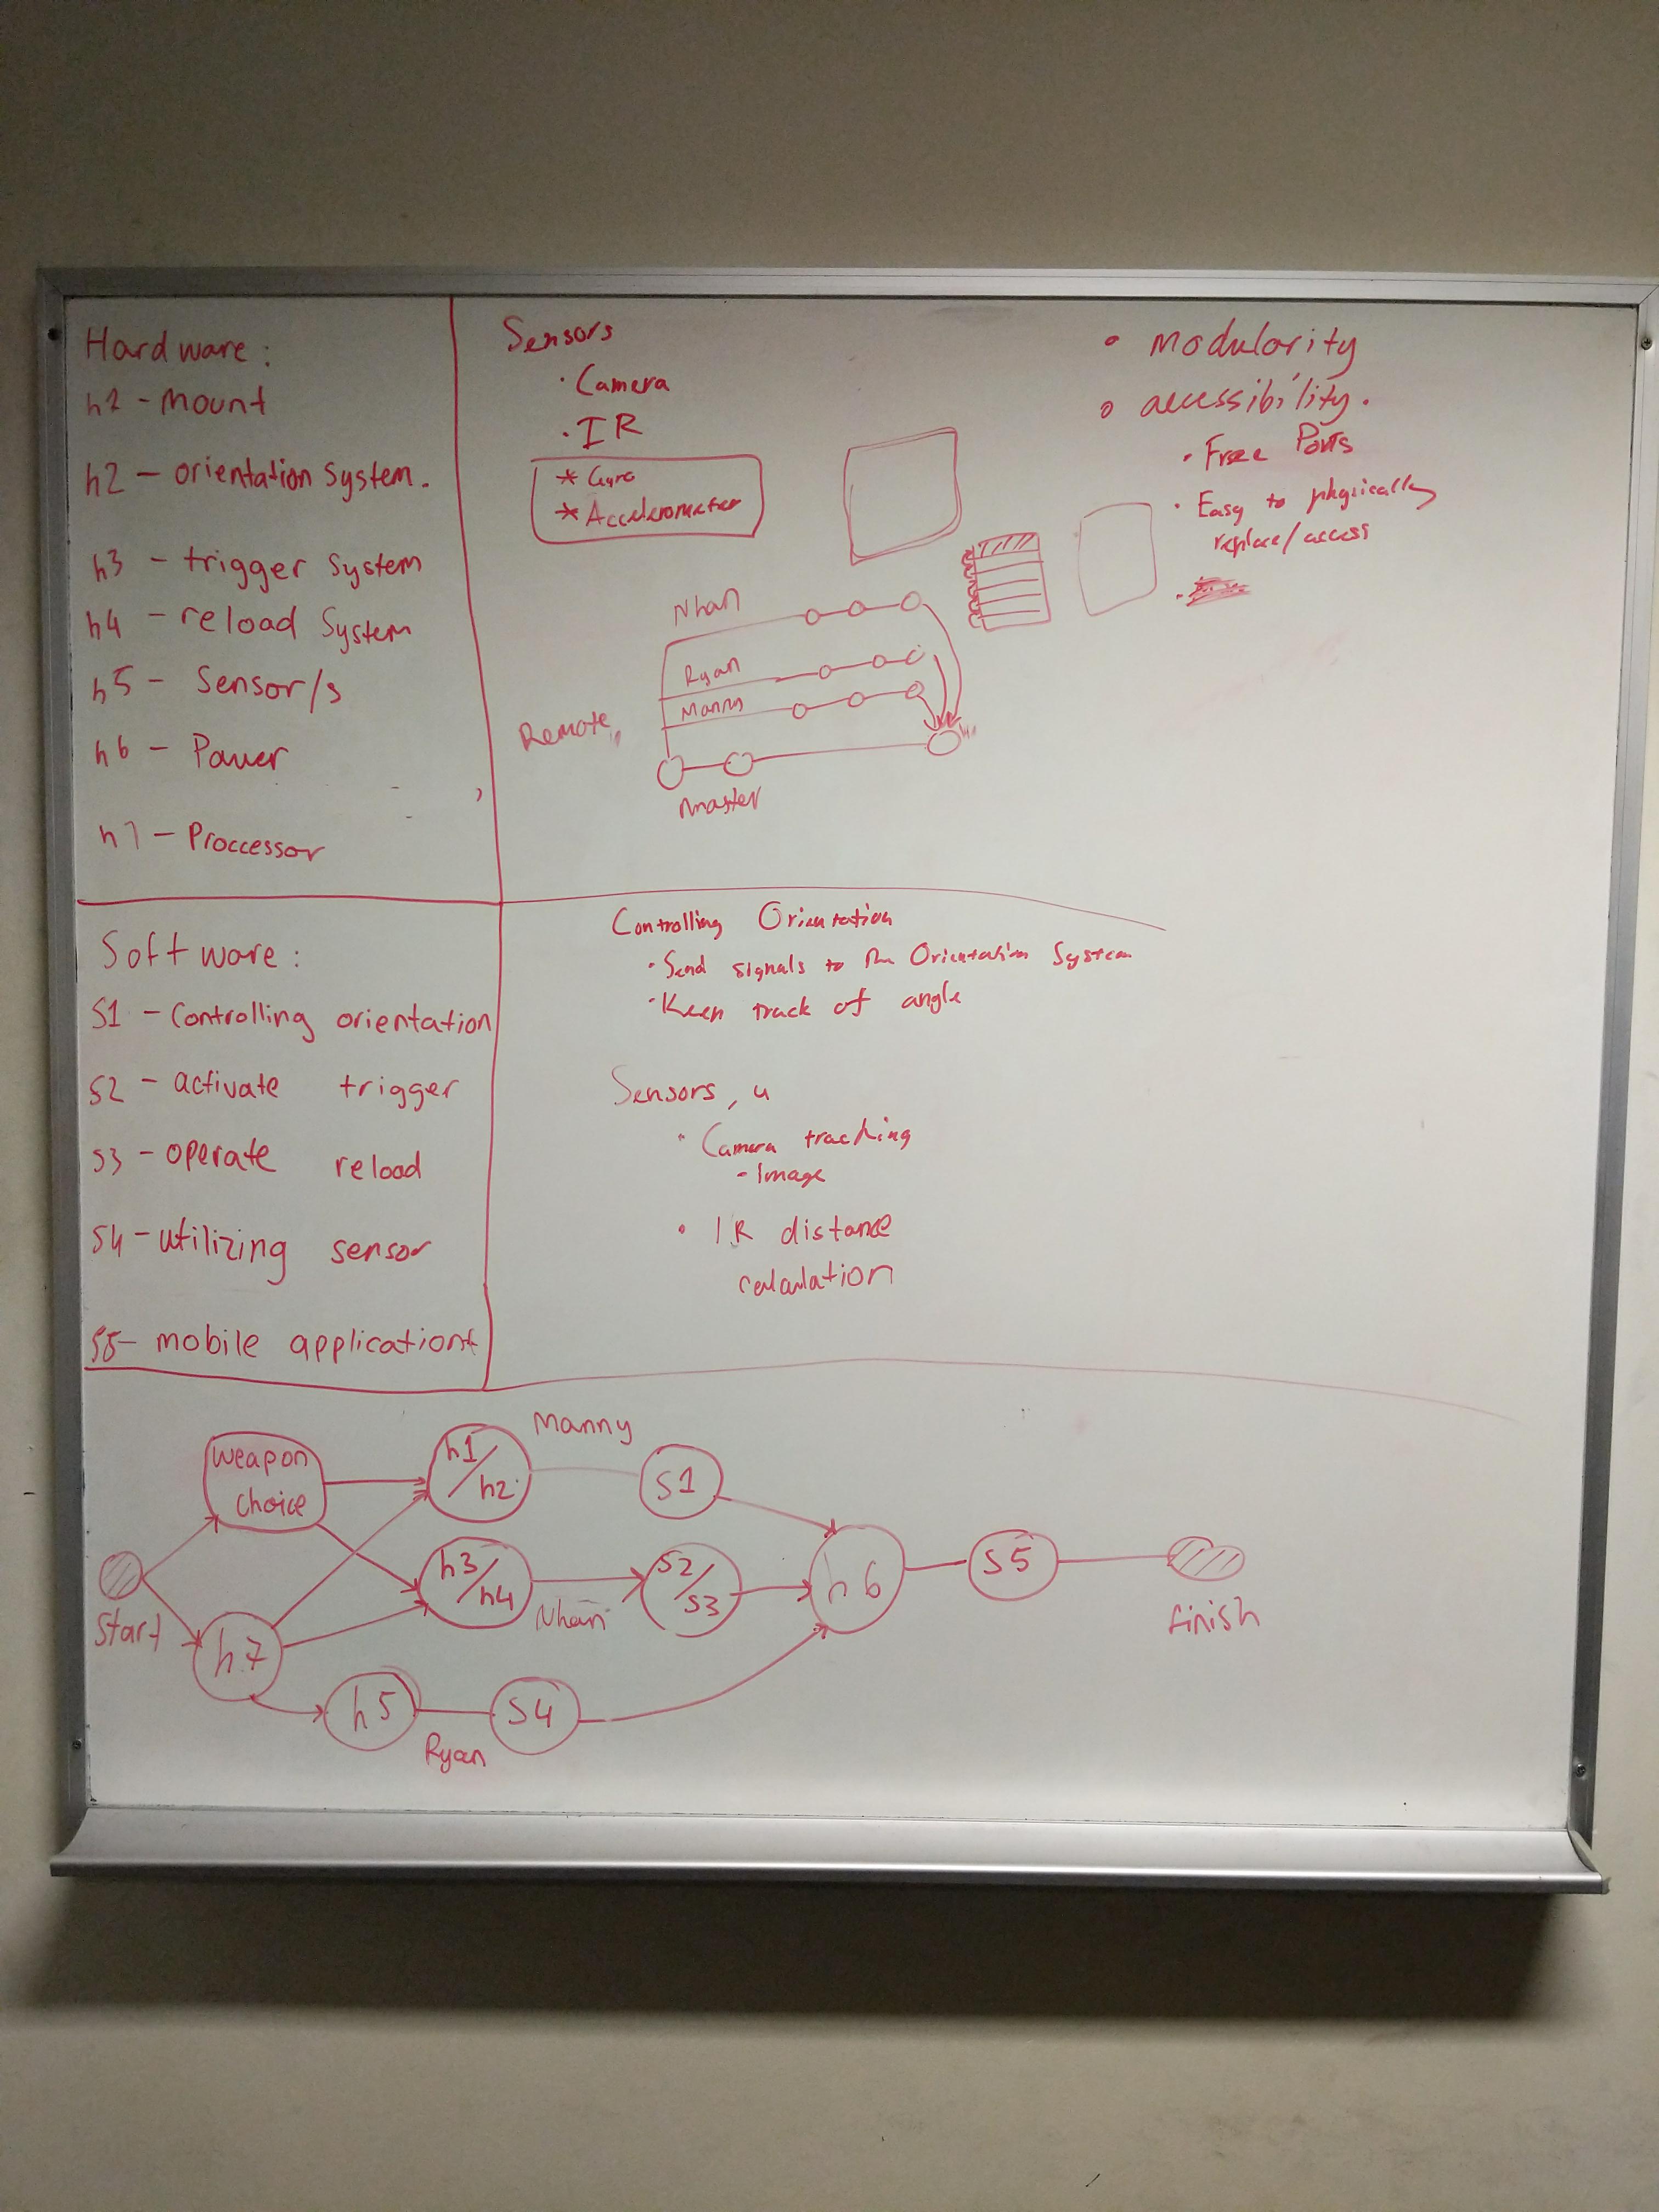 Hardware:
h1 - mount
h2 - orientation system.
h3 - trigger system
h4 - reload system
h5 - Sensor/s
h6 - Power
h7 - Proccessor
Sensors
· Camera
· IR
* Gyro
* Accelerometer
Nhan
Ryan
Manny
Remote
master
• modularity
• accessibility.
· Free Ports
· Easy to physically
replace/access
Software:
S1 - Controlling orientation
S2 - activate trigger
S3 - operate reload
S4 - utilizing sensor
S5 - mobile application
Controlling Orientation
· Send signals to the Orientation System
· Keep track of angle
Sensors, u
· Camera tracking
- Image
· IR distance
calculation
Manny
Weapon
Choice
h1/h2
S1
h3/h4
S2/S3
h6
S5
Start
Nhan
finish
h7
h5
S4
Ryan